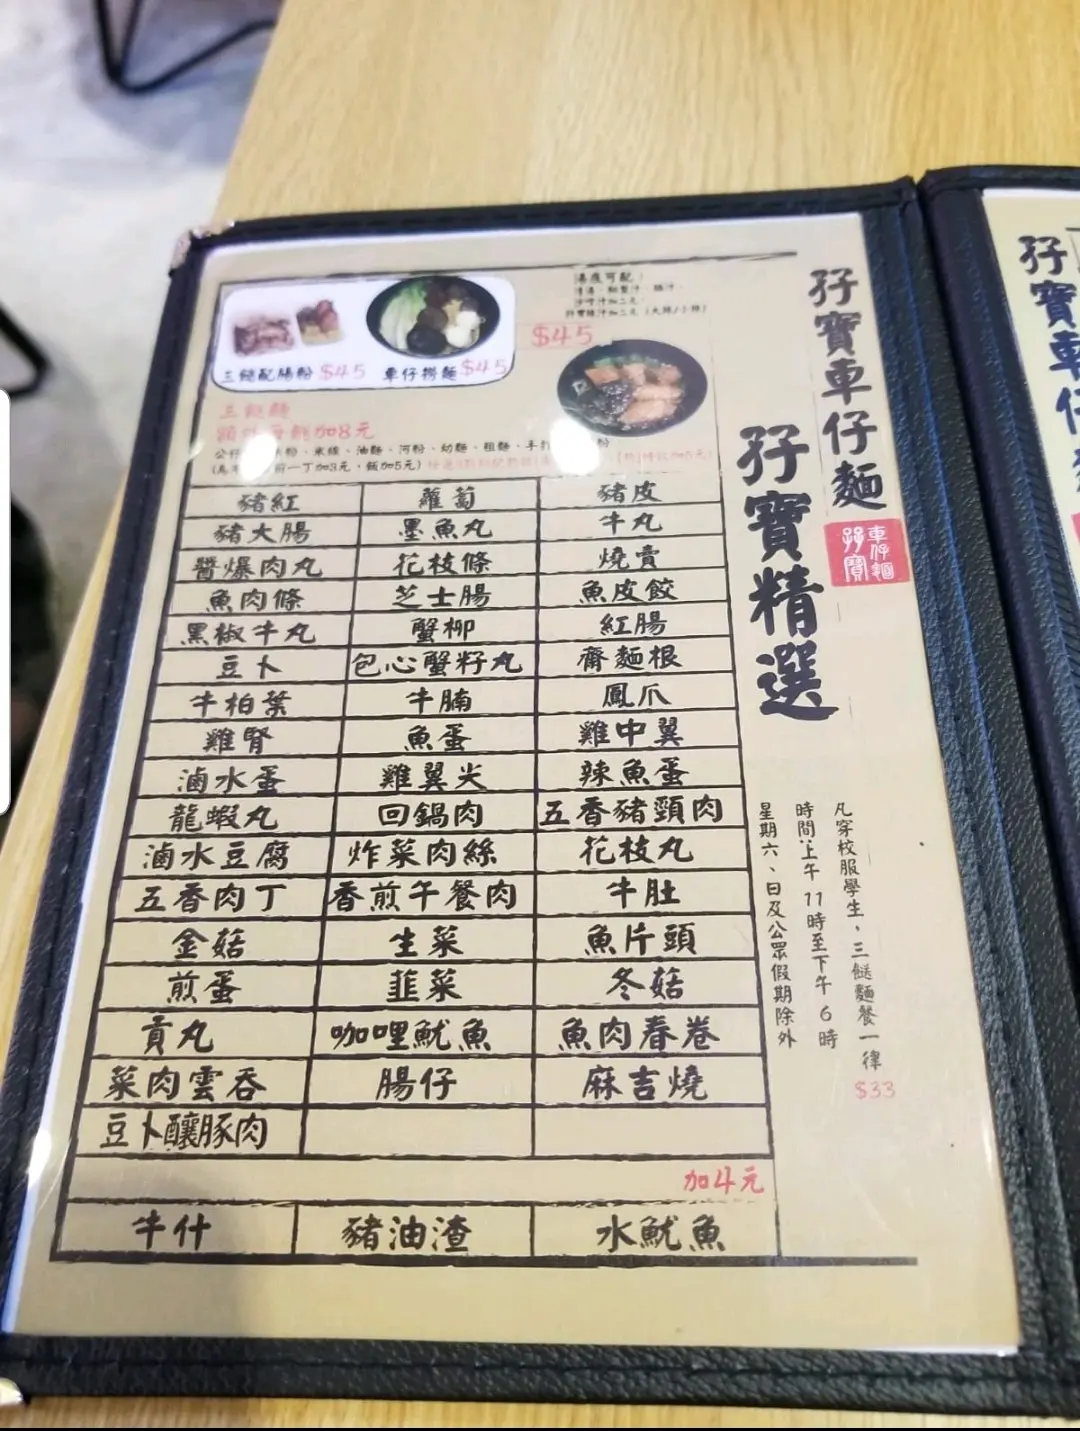 孖寶車仔麵
孖寶精選
車仔麵
孖寶
湯底可配：
三餸配腸粉 $45 車仔撈麵 $45
$45
三餸麵
額外每餸加8元
豬紅 蘿蔔 豬皮
豬大腸 墨魚丸 牛丸
醬爆肉丸 花枝條 燒賣
魚肉條 芝士腸 魚皮餃
黑椒牛丸 蟹柳 紅腸
豆卜 包心蟹籽丸 齋麵根
牛柏葉 牛腩 鳳爪
雞腎 魚蛋 雞中翼
滷水蛋 雞翼尖 辣魚蛋
龍蝦丸 回鍋肉 五香豬頸肉
滷水豆腐 炸菜肉絲 花枝丸
五香肉丁 香煎午餐肉 牛肚
金菇 生菜 魚片頭
煎蛋 韮菜 冬菇
貢丸 咖哩魷魚 魚肉春卷
菜肉雲吞 腸仔 麻吉燒
豆卜釀豚肉
加4元
牛什 豬油渣 水魷魚
凡穿校服學生，三餸麵餐一律 $33
時間：上午11時至下午6時
星期六、日及公眾假期除外
孖寶車仔